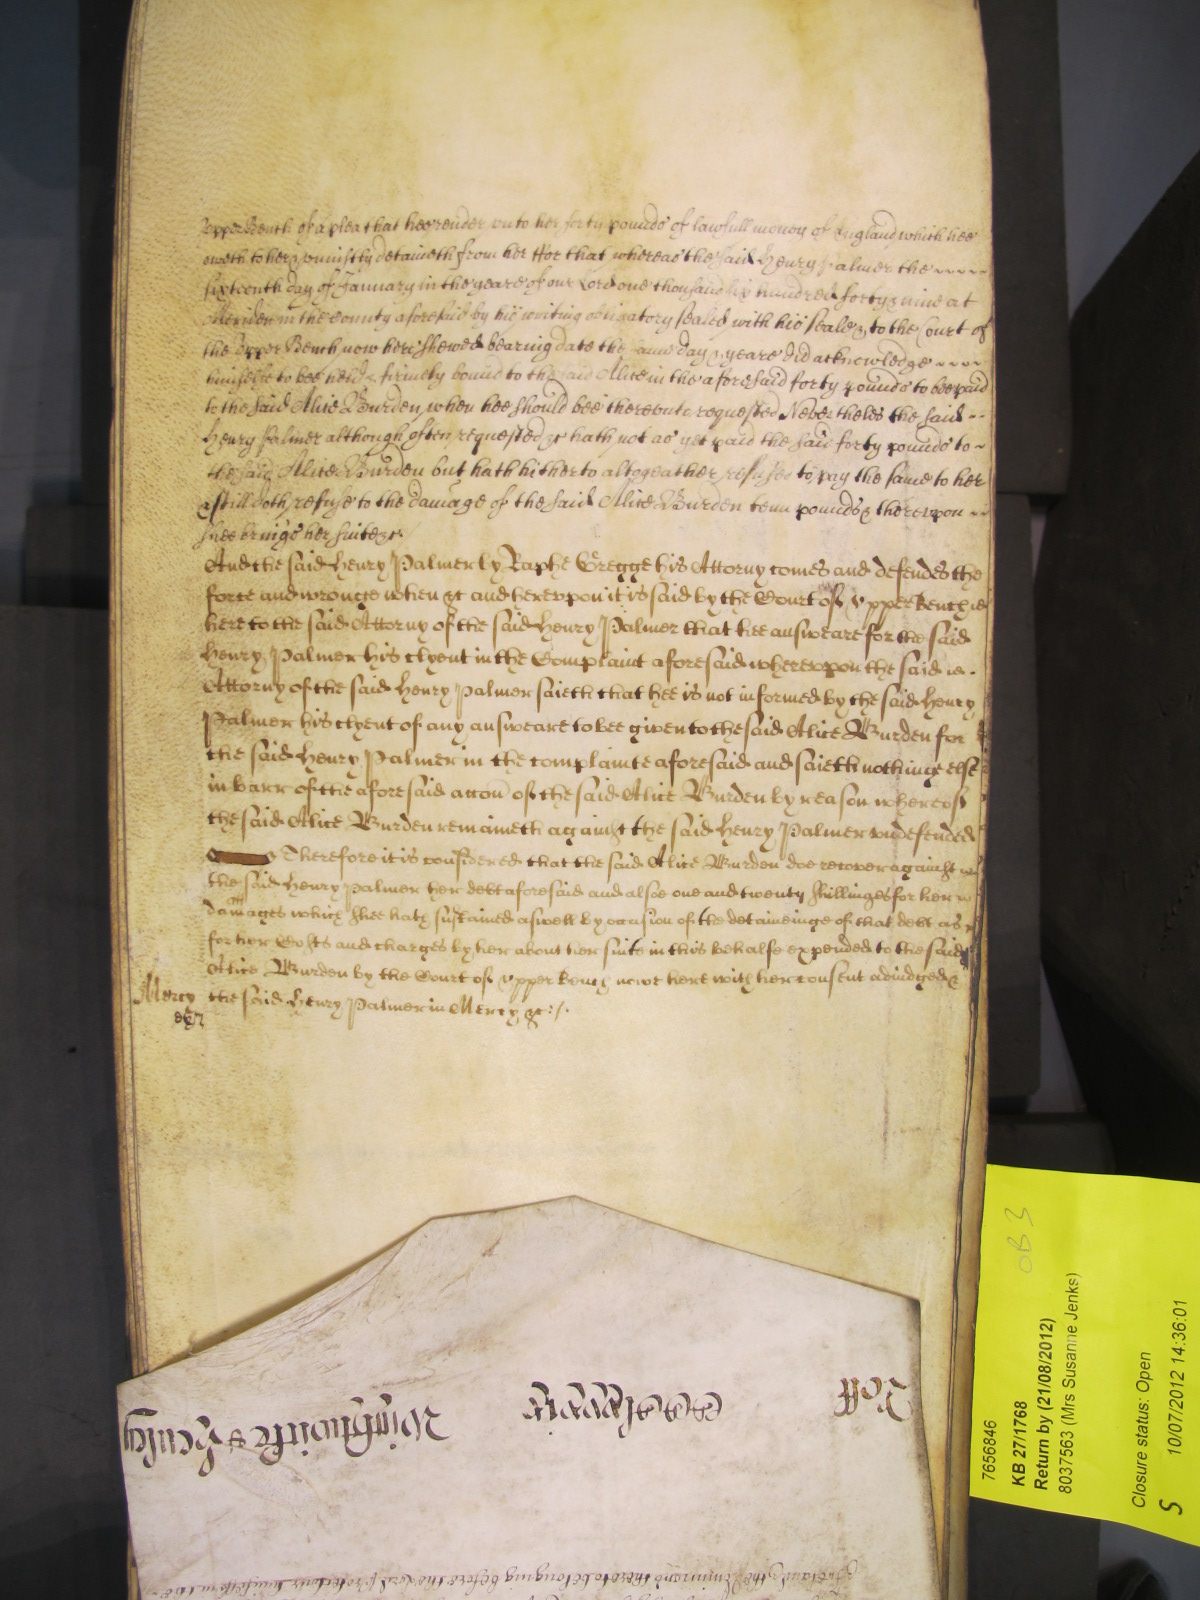 upper Bench of a plea that hee render unto her forty pounds of lawfull money of England which hee
oweth to her & uniustly detaineth from her ffor that whereas the said Henry Palmer the
sixteenth day of January in the yeare of our Lord one thousand six hundred forty & nine at
in the County aforesaid by his writing obligatory sealed with his seale & to the Court of
the upper Bench now here shewed bearing date the same day & yeare did acknowledge
himselfe to bee held & firmely bound to the said Alice in the aforesaid forty pounds to bee paid
to the said Alice Burden when hee should bee thereunto requested Nevertheles the said
Henry Palmer although often requested &c hath not as yet paid the said forty pounds to
the said Alice Burden but hath hitherto altogeather refused to pay the same to her
& still doth refuse to the damage of the said Alice Burden tenn pounds & thereupon
shee brings her suite &c
And the said Henry Palmer by Raphe Gregge his Attorny comes and defendes the
force and wronge when &c and hereupon it is said by the Court of upper bench
here to the said Attorny of the said Henry Palmer that hee answeare for the said
Henry Palmer his clyent in the Complaint aforesaid whereupon the said
Attorny of the said Henry Palmer saieth that hee is not informed by the said Henry
Palmer his clyent of any answeare to bee given to the said Alice Burden for
the said Henry Palmer in the complainte aforesaid and saieth nothinge else
in barr of the aforesaid accon of the said Alice Burden by reason whereof
the said Alice Burden remaineth against the said Henry Palmer undefended
Therefore it is considered that the said Alice Burden doe recover against
the said Henry Palmer her debt aforesaid and alsoe one and twenty shillinges for her
damages which shee hath sustained aswell by occasion of the detaineinge of that debt as
for her Costs and charges by her about her suite in this behalfe expended to the said
Alice Burden by the Court of upper bench nowe here with her consent adiudged &
Mercy the said Henry Palmer in Mercy &c
Roll
7656846
KB 27/1768
Return by (21/08/2012)
8037563 (Mrs Susanne Jenks)
OB 3
Closure status: Open
S 10/07/2012 14:36:01